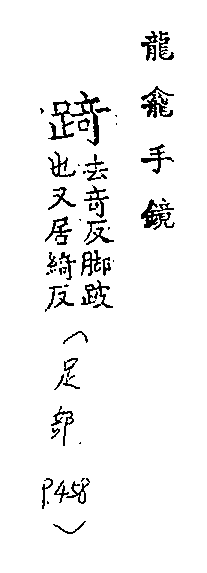 龍龕手鏡
踦去奇反脚跛
也又居綺反
（足部 P.458）